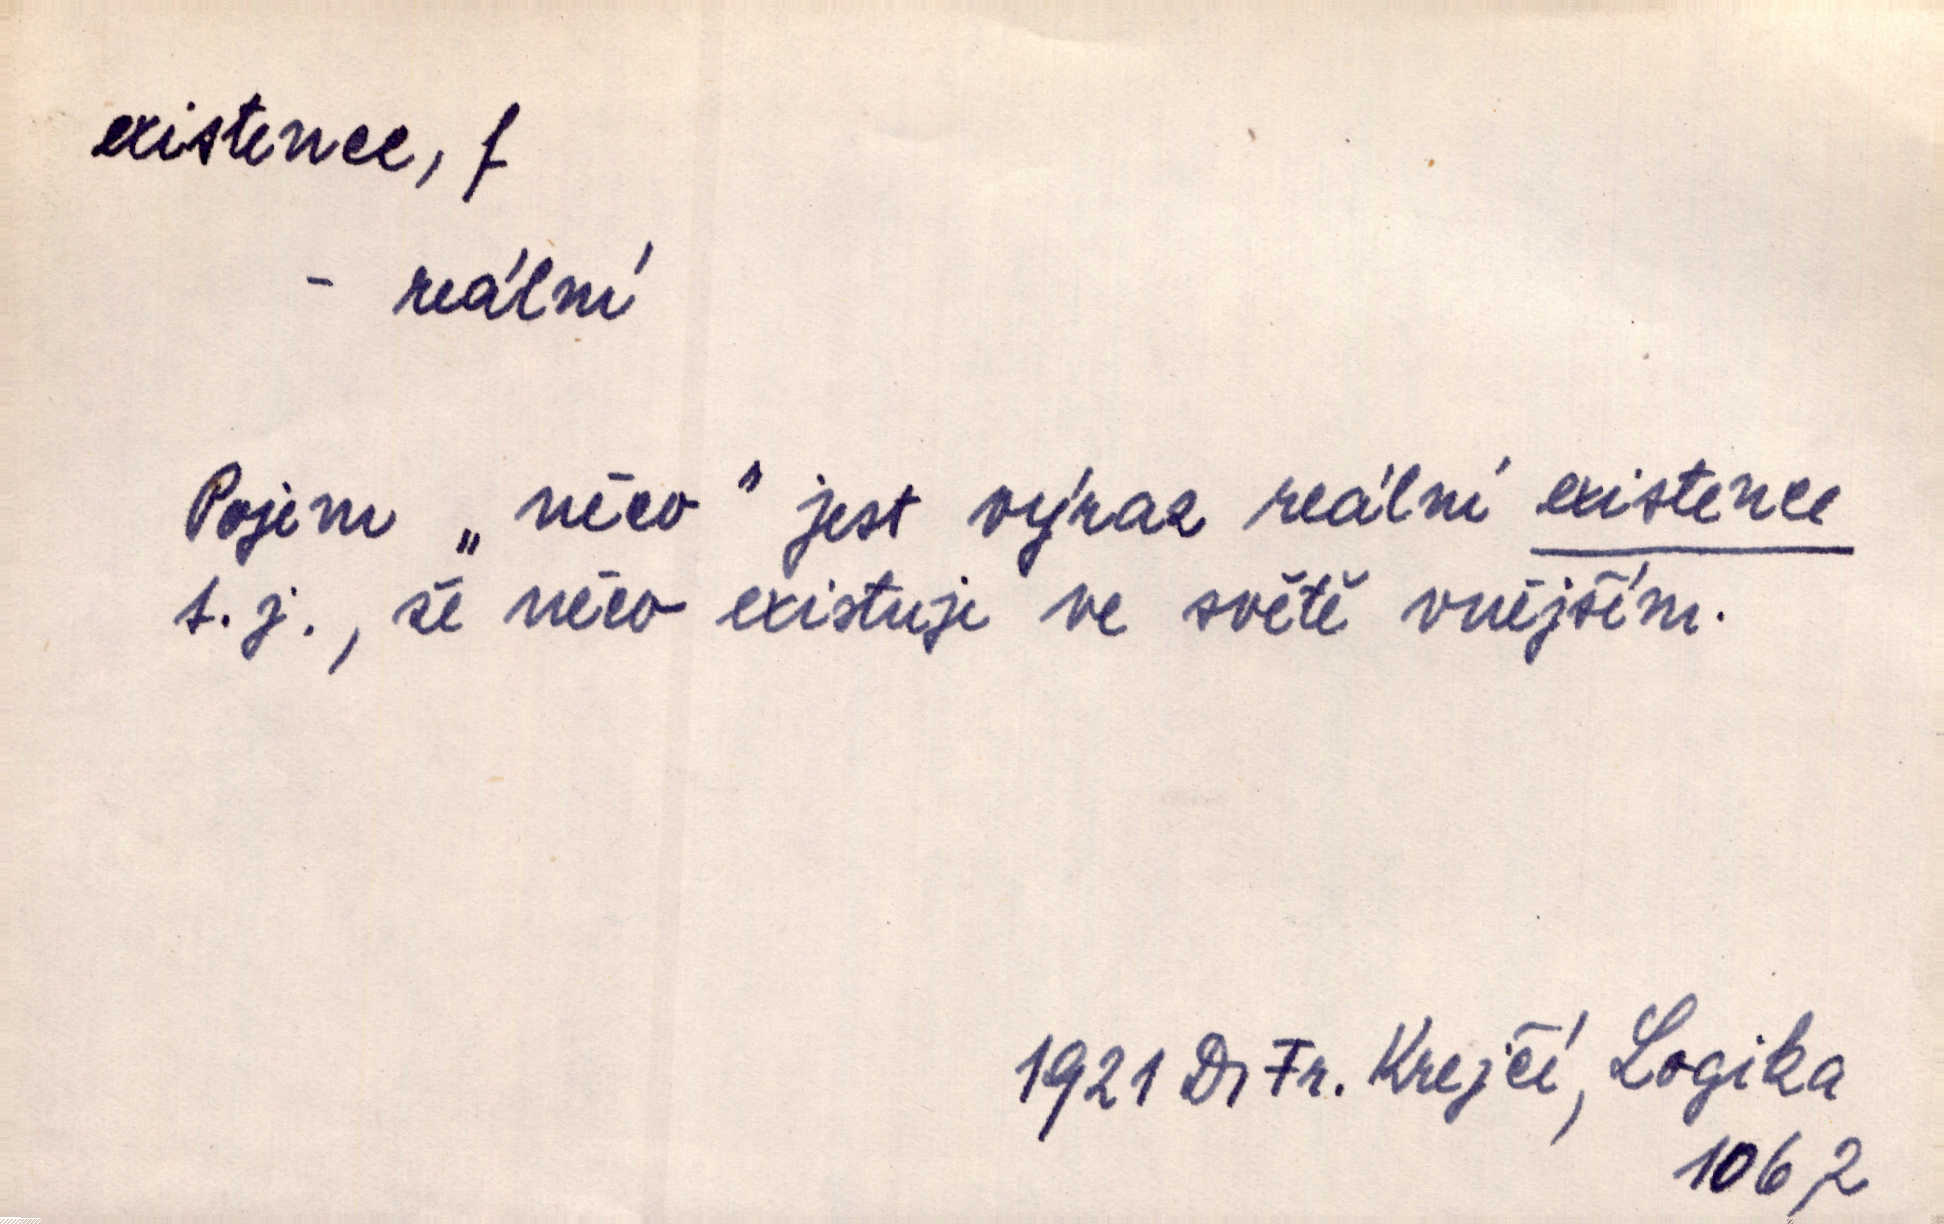 existence, f
- reální
Pojem „něco" jest výraz reální existence
t.j., že něco existuje ve světě vnějším.
1921 Dr Fr. Krejčí, Logika
106,2